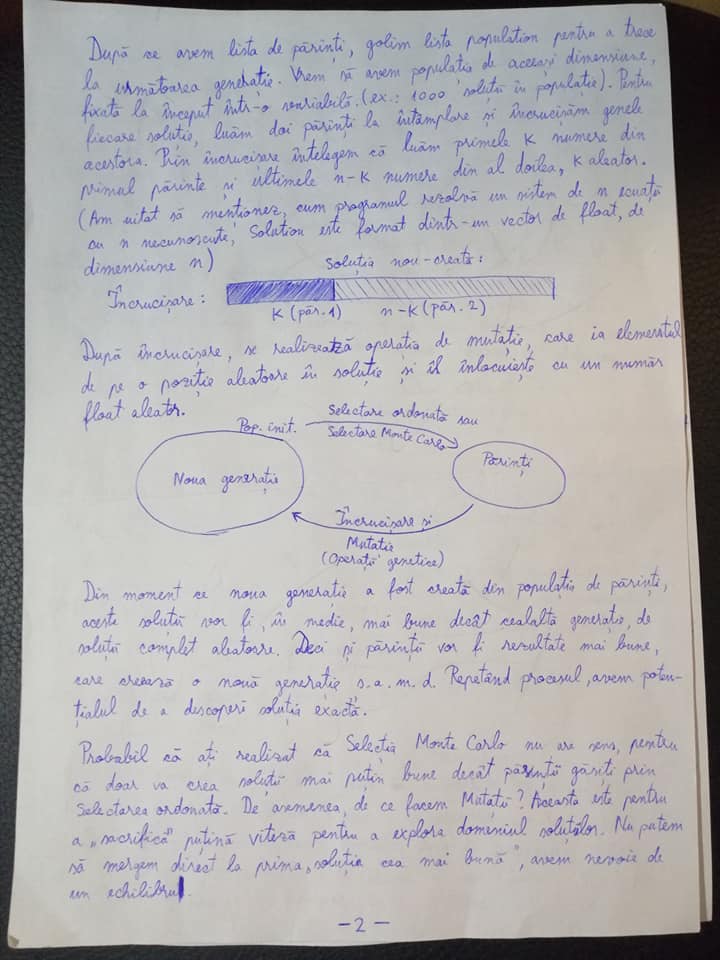 După ce avem lista de părinți, golim lista population pentru a trece
la următoarea generație. Vrem să avem populația de aceeași dimensiune,
fixată la început într-o variabilă. (ex.: 1000 soluții în populație). Pentru
fiecare soluție, luăm doi părinți la întâmplare și încrucișăm genele
acestora. Prin încrucișare înțelegem că luăm primele K numere din
primul părinte și ultimele n-K numere din al doilea, K aleator.
(Am uitat să menționez, cum programul rezolvă un sistem de n ecuații
cu n necunoscute, Solution este format dintr-un vector de float, de
dimensiune n)
Soluția nou-creată:
Încrucișare:
K (păr. 1) n-K (păr. 2)
După încrucișare, se realizează operația de mutație, care ia elementul
de pe o poziție aleatoare în soluție și îl înlocuiește cu un număr
float aleator.
Pop. init. Selectare ordonată sau
Selectare Monte Carlo
Noua generație
Părinți
Încrucișare și
Mutație
(Operații genetice)
Din moment ce noua generație a fost creată din populația de părinți,
aceste soluții vor fi, în medie, mai bune decât cealaltă generație, de
soluții complet aleatoare. Deci și părinții vor fi rezultate mai bune,
care creează o nouă generație ș.a.m.d. Repetând procesul, avem poten-
țialul de a descoperi soluția exactă.
Probabil că ați realizat că Selecția Monte Carlo nu are sens, pentru
că doar va crea soluții mai puțin bune decât părinții găsiți prin
Selectarea ordonată. De asemenea, de ce facem Mutații? Aceasta este pentru
a „sacrifica" puțină viteză pentru a explora domeniul soluțiilor. Nu putem
să mergem direct la prima „soluția cea mai bună", avem nevoie de
un echilibru.
-2-